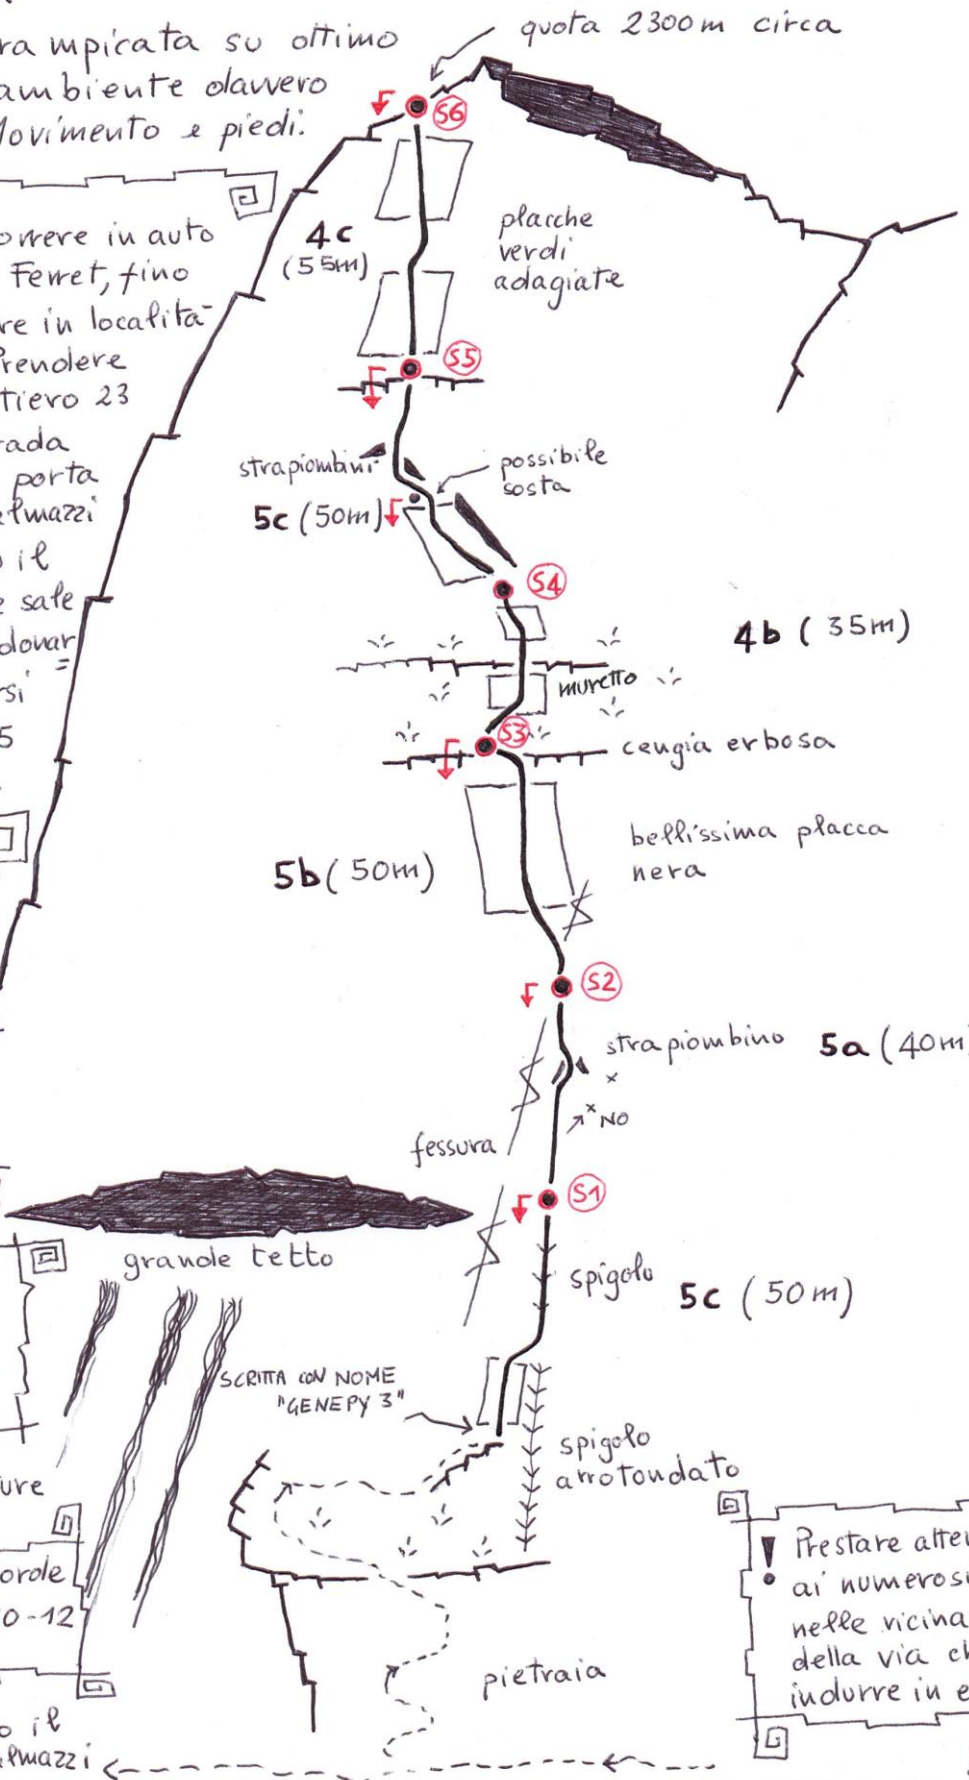 quota 2300m circa
rampicata su ottimo
ambiente davvero
Movimento e piedi.
S6
orrere in auto
Ferret, fino
re in località
Prendere
tiero 23
rada
porta
lmazzi
il
e sale
donar
=
rsi
5
4c
(55m)
placche
verdi
adagiate
S5
strapiombini
possibile
sosta
5c (50m)
S4
4b (35m)
muretto
S3
cengia erbosa
bellissima placca
nera
5b (50m)
S2
strapiombino
5a (40m
x
x NO
fessura
S1
grande tetto
spigolo
5c (50m)
SCRITTA CON NOME
"GENEPY 3"
spigolo
arrotondato
ure
orde
0-12
pietraia
o il
lmazzi
! Prestare atte
ai numerosi
nelle vicina
della via ch
indurre in e